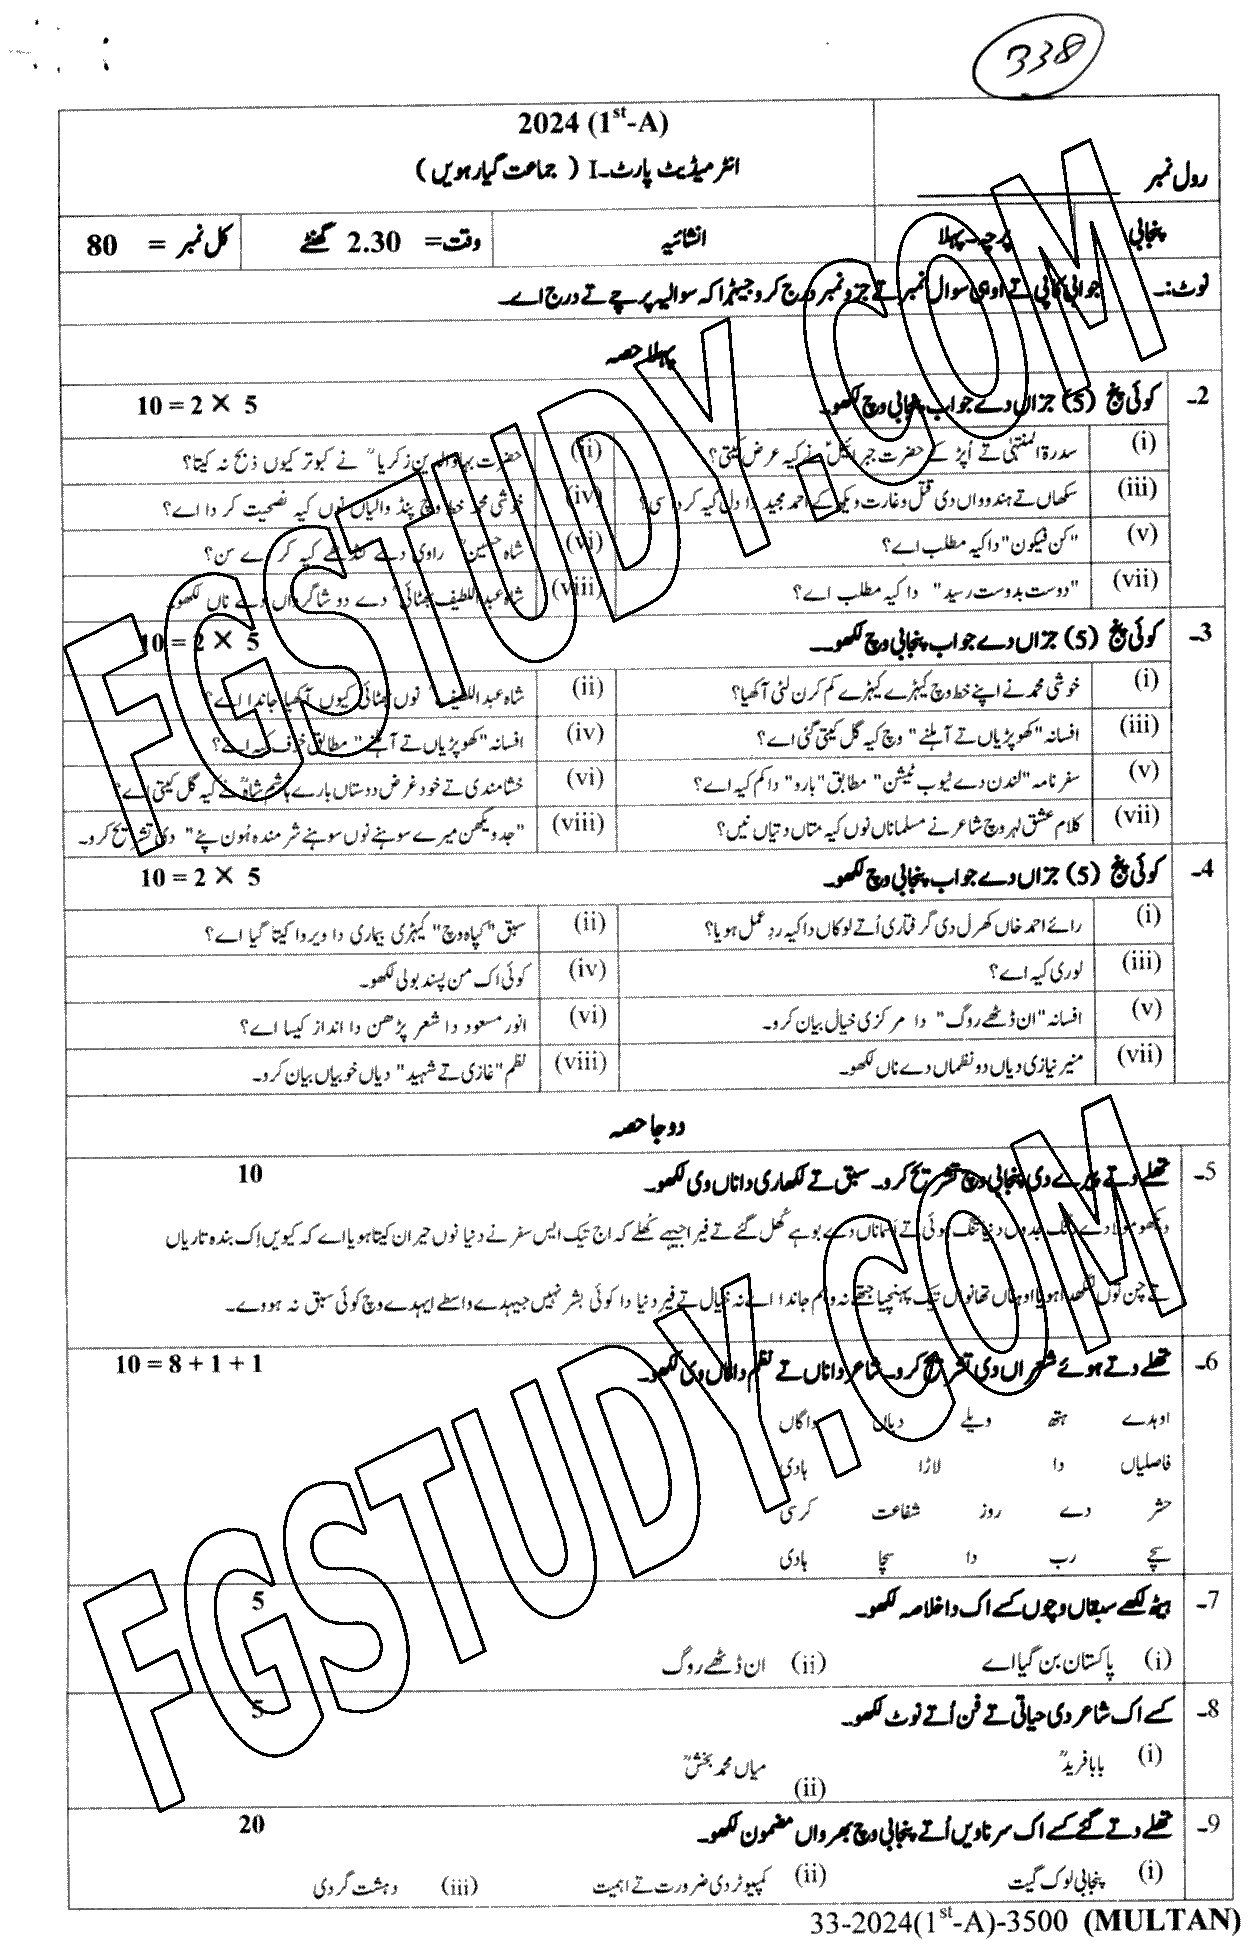 338
2024 (1st-A)
انٹرمیڈیٹ پارٹ-I ( جماعت گیارہویں )
رول نمبر
پنجابی پرچہ - پہلا انشائیہ وقت= 2.30 گھنٹے کل نمبر = 80
نوٹ:- جوابی کاپی تے اوہی سوال نمبر تے جز نمبر درج کرو جیہڑا کہ سوالیہ پرچے تے درج اے۔
پہلا حصہ
2- کوئی پنج (5) جزاں دے جواب پنجابی وچ لکھو۔ 10 = 2 × 5
(i) سدرۃ المنتہیٰ تے اُپڑ کے حضرت جبرائیلؑ نے کیہ عرض کیتی؟
(ii) حضرت بہاؤالدین زکریاؒ نے کبوتر کیوں ذبح نہ کیتا؟
(iii) سکھاں تے ہندوواں دی قتل و غارت ویکھ کے احمد مجید دا دل کیہ کردا سی؟
(iv) خوشی محمد خط وچ پنڈ والیاں نوں کیہ نصیحت کردا اے؟
(v) "کن فیکون" دا کیہ مطلب اے؟
(vi) شاہ حسینؒ راوی دے کنڈھے کیہ کردے سن؟
(vii) "دوست بدوست رسید" دا کیہ مطلب اے؟
(viii) شاہ عبداللطیف بھٹائیؒ دے دو شاگرداں دے ناں لکھو۔
3- کوئی پنج (5) جزاں دے جواب پنجابی وچ لکھو۔ 10 = 2 × 5
(i) خوشی محمد نے اپنے خط وچ کیہڑے کیہڑے کم کرن لئی آکھیا؟
(ii) شاہ عبداللطیفؒ نوں بھٹائی کیوں آکھیا جاندا اے؟
(iii) افسانہ "کھوپڑیاں تے آہلنے" وچ کیہ گل کیتی گئی اے؟
(iv) افسانہ "کھوپڑیاں تے آہلنے" مطابق خوف کیہ اے؟
(v) سفرنامہ "لندن دے ٹیوب ٹیشن" مطابق "بارو" دا کم کیہ اے؟
(vi) خشامندی تے خود غرض دوستاں بارے ہاشم شاہؒ نے کیہ گل کیتی اے؟
(vii) کلام عشق لہر وچ شاعر نے مسلماناں نوں کیہ متاں دتیاں نیں؟
(viii) "جد ویکھن میرے سوہنے نوں سوہنے شرمندہ ہُون پئے" دی تشریح کرو۔
4- کوئی پنج (5) جزاں دے جواب پنجابی وچ لکھو۔ 10 = 2 × 5
(i) رائے احمد خاں کھرل دی گرفتاری اُتے لوکاں دا کیہ ردِ عمل ہویا؟
(ii) سبق "کپاہ وچ" کیہڑی بیماری دا ویروا کیتا گیا اے؟
(iii) لوری کیہ اے؟
(iv) کوئی اک من پسند بولی لکھو۔
(v) افسانہ "ان ڈٹھے روگ" دا مرکزی خیال بیان کرو۔
(vi) انور مسعود دا شعر پڑھن دا انداز کیسا اے؟
(vii) منیر نیازی دیاں دو نظماں دے ناں لکھو۔
(viii) نظم "غازی تے شہید" دیاں خوبیاں بیان کرو۔
دوجا حصہ
5- تھلے دتے پیرے دی پنجابی وچ تشریح کرو۔ سبق تے لکھاری دا ناں وی لکھو۔ 10
ویکھو مولا دے رنگ جدوں دنیا تنگ ہوئی تے اسماناں دے بوہے کُھل گئے تے فیر اجیہے کُھلے کہ اج تیک ایس سفر نے دنیا نوں حیران کیتا ہویا اے کہ کیویں اِک بندہ تاریاں
تے چن نوں لنگھدا ہویا اوہناں تھانواں تیک پہنچیا جتھے نہ وہم جاندا اے نہ خیال تے فیر دنیا دا کوئی بشر نہیں جیہدے واسطے ایہدے وچ کوئی سبق نہ ہووے۔
6- تھلے دتے ہوئے شعراں دی تشریح کرو۔ شاعر دا ناں تے نظم دا ناں وی لکھو۔ 10 = 8 + 1 + 1
اوہدے ہتھ ویلے دیاں واگاں
فاصلیاں دا لاڑا ہادی
حشر دے روز شفاعت کرسی
سچے رب دا سچا ہادی
7- ہیٹھ لکھے سبقاں وچوں کسے اک دا خلاصہ لکھو۔ 5
(i) پاکستان بن گیا اے (ii) ان ڈٹھے روگ
8- کسے اک شاعر دی حیاتی تے فن اُتے نوٹ لکھو۔ 5
(i) بابا فریدؒ (ii) میاں محمد بخشؒ
9- تھلے دتے گئے کسے اک سرناویں اُتے پنجابی وچ بھرواں مضمون لکھو۔ 20
(i) پنجابی لوک گیت (ii) کمپیوٹر دی ضرورت تے اہمیت (iii) دہشت گردی
33-2024(1st-A)-3500 (MULTAN)
FGSTUDY.COM
FGSTUDY.COM